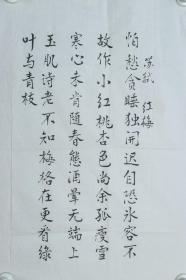 苏轼 红梅
怕愁贪睡独開迟自恐氷容不
故作小红桃杏色尚余孤瘦雪
寒心未肯随春態酒晕无端上
玉肌诗老不知梅格在更看绿
叶与青枝